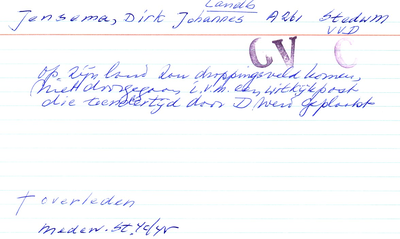 Landb
Jensema, Dirk Johannes A261 Stedum
VVD
CV C
op zijn land zou droppingsveld komen,
(Niet doorgegaan i.v.m. een uitkijkpost
die teendertijd door D werd geplaatst
† overleden
medew. St.